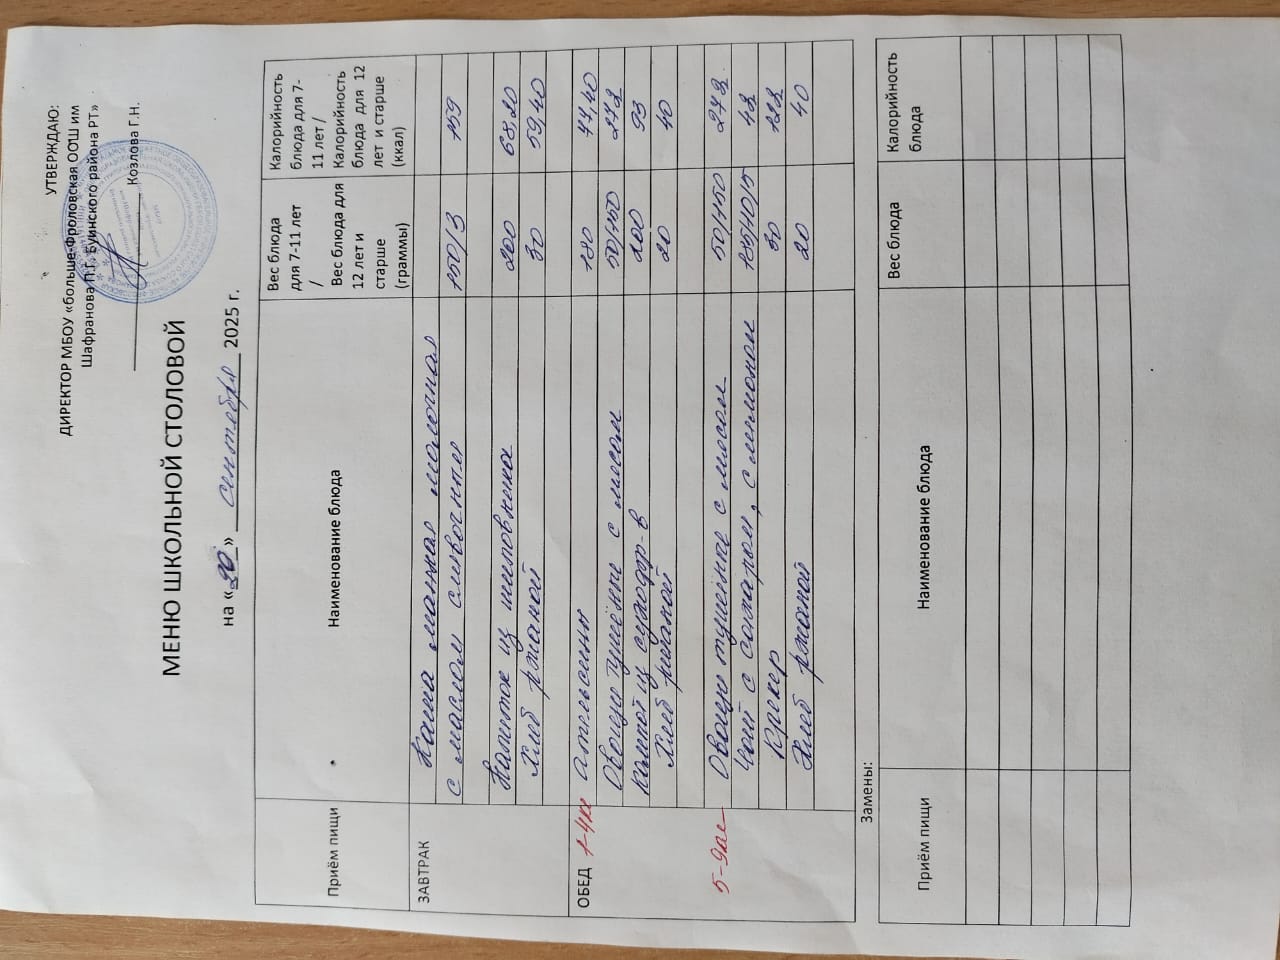 УТВЕРЖДАЮ:
ДИРЕКТОР МБОУ «больше-Фроловская ООШ им
Шафранова П.Г. Буинского района РТ»
Козлова Г.Н.
МЕНЮ ШКОЛЬНОЙ СТОЛОВОЙ
на « » сентября 2025 г.
Приём пищи Наименование блюда Вес блюда для 7-11 лет / Вес блюда для 12 лет и старше (граммы) Калорийность блюда для 7-11 лет / Калорийность блюда для 12 лет и старше (ккал)
ЗАВТРАК Каша манная молочная
с маслом сливочным 150/3 159
Напиток из шиповника 200 68,20
Хлеб ржаной 30 59,40
ОБЕД 1-4кл апельсины 180 77,40
Овощи тушёные с мясом 50/150 272
Компот из сухофр-в 200 93
Хлеб ржаной 20 40
5-9 Овощи тушёные с мясом 50/150 272
Чай с сахаром, с лимоном 185/10/5 42
Крекер 30 122
Хлеб ржаной 20 40
Замены:
Приём пищи Наименование блюда Вес блюда Калорийность блюда